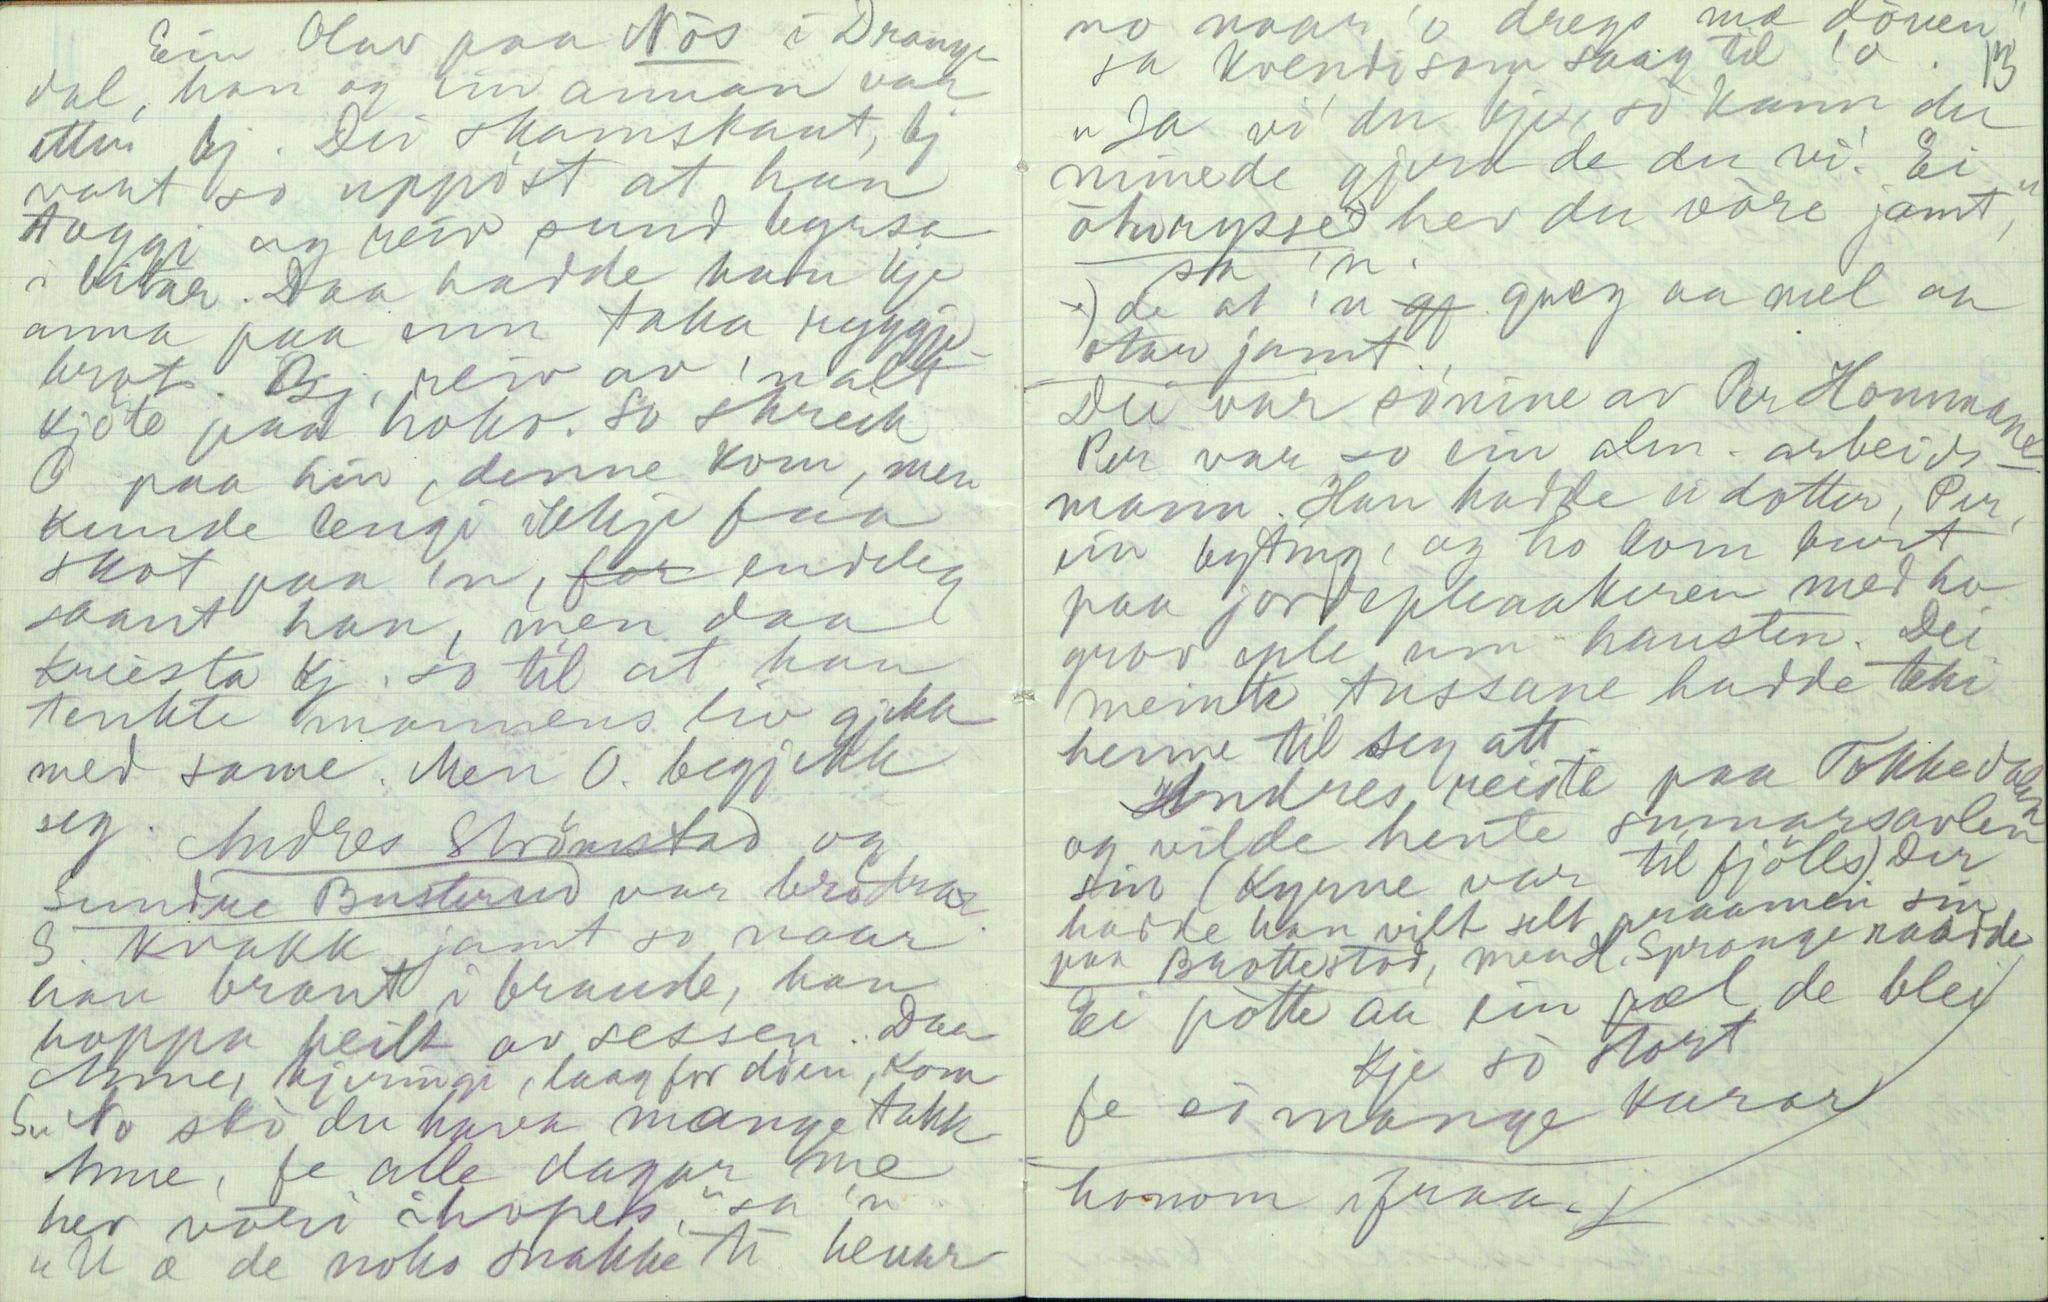 Ein Olav paa Nös i Drange
dal, han og ein annan var
etter bj. Dei skamskaut, bj
vart so uppöst at han
töggi og reiv sund byrsa
i bitar. Daa hadde han kje
anna paa enn taka ryggje
brot. Bj. reiv av 'n alt
kjöte paa noko. So skreik
O paa hin, denne kom, men
kunde lengi ikkje faa
skot paa 'n, for endeleg
skaut han, men daa
kreista bj. so til at han
tenkte mannens liv gjekk
med same. Men O. begjekk
seg. Andres Strömstad og
Sundre Busterud var brödrar.
S. kvakk jamt so naar
han brant i brande, han
hoppa heilt av sessen. Daa
Anne, kjeringi, laag for döen, kom
S. "No sko du hava mange takk
Anne, fe alle dagar me
hev vöri ihopes," sa 'n
"U æ de noko snakke ti henar
no naar 'o dregs mæ döuen"
sa kvendi som saag til 'o. 13
"Ja vi' du kje, so kann du
minede gjera de du vi'. Ei
öturysse hev du vöre jamt,"
sa 'n.
+) de at 'n gneg aa mel aa
otar jamt.
Dei var sönine av Per Hommane.
Per var so ein alm. arbeids-
mann. Han hadde ei dotter, Per,
ein byting, og ho kom burt
paa jordepleaakeren med ho
grov eple um hausten. Dei
meinte tussane hadde teki
henne til seg att.
Andres reiste paa Tokkedalen
og vilde hente sumarsavlen
sin (kyrne var til fjölls) Der
hadde han vilt selt praamen sin
paa Baottestod, men H. Sprange raadde
Ei potte aa ein pæl de blei
kje so stort
fe so mange kurar
honom ifraa.